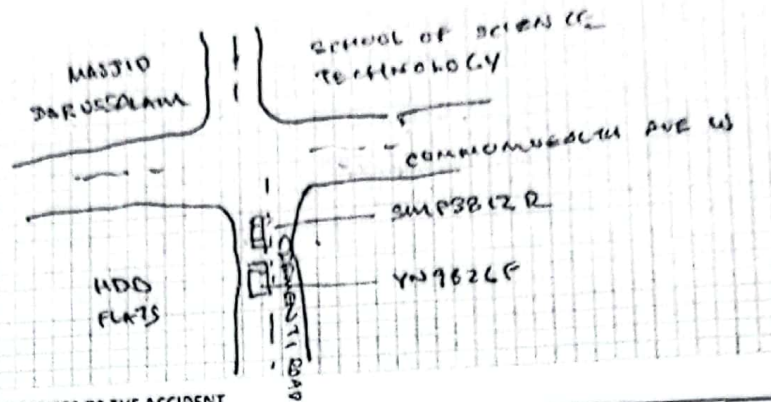 MASJID
DARUSSALAM
SCHOOL OF SCIENCE
TECHNOLOGY
COMMONWEALTH AVE W
SMP3812R
YN9826F
HDB
FLATS
CLEMENTI ROAD
TO THE ACCIDENT